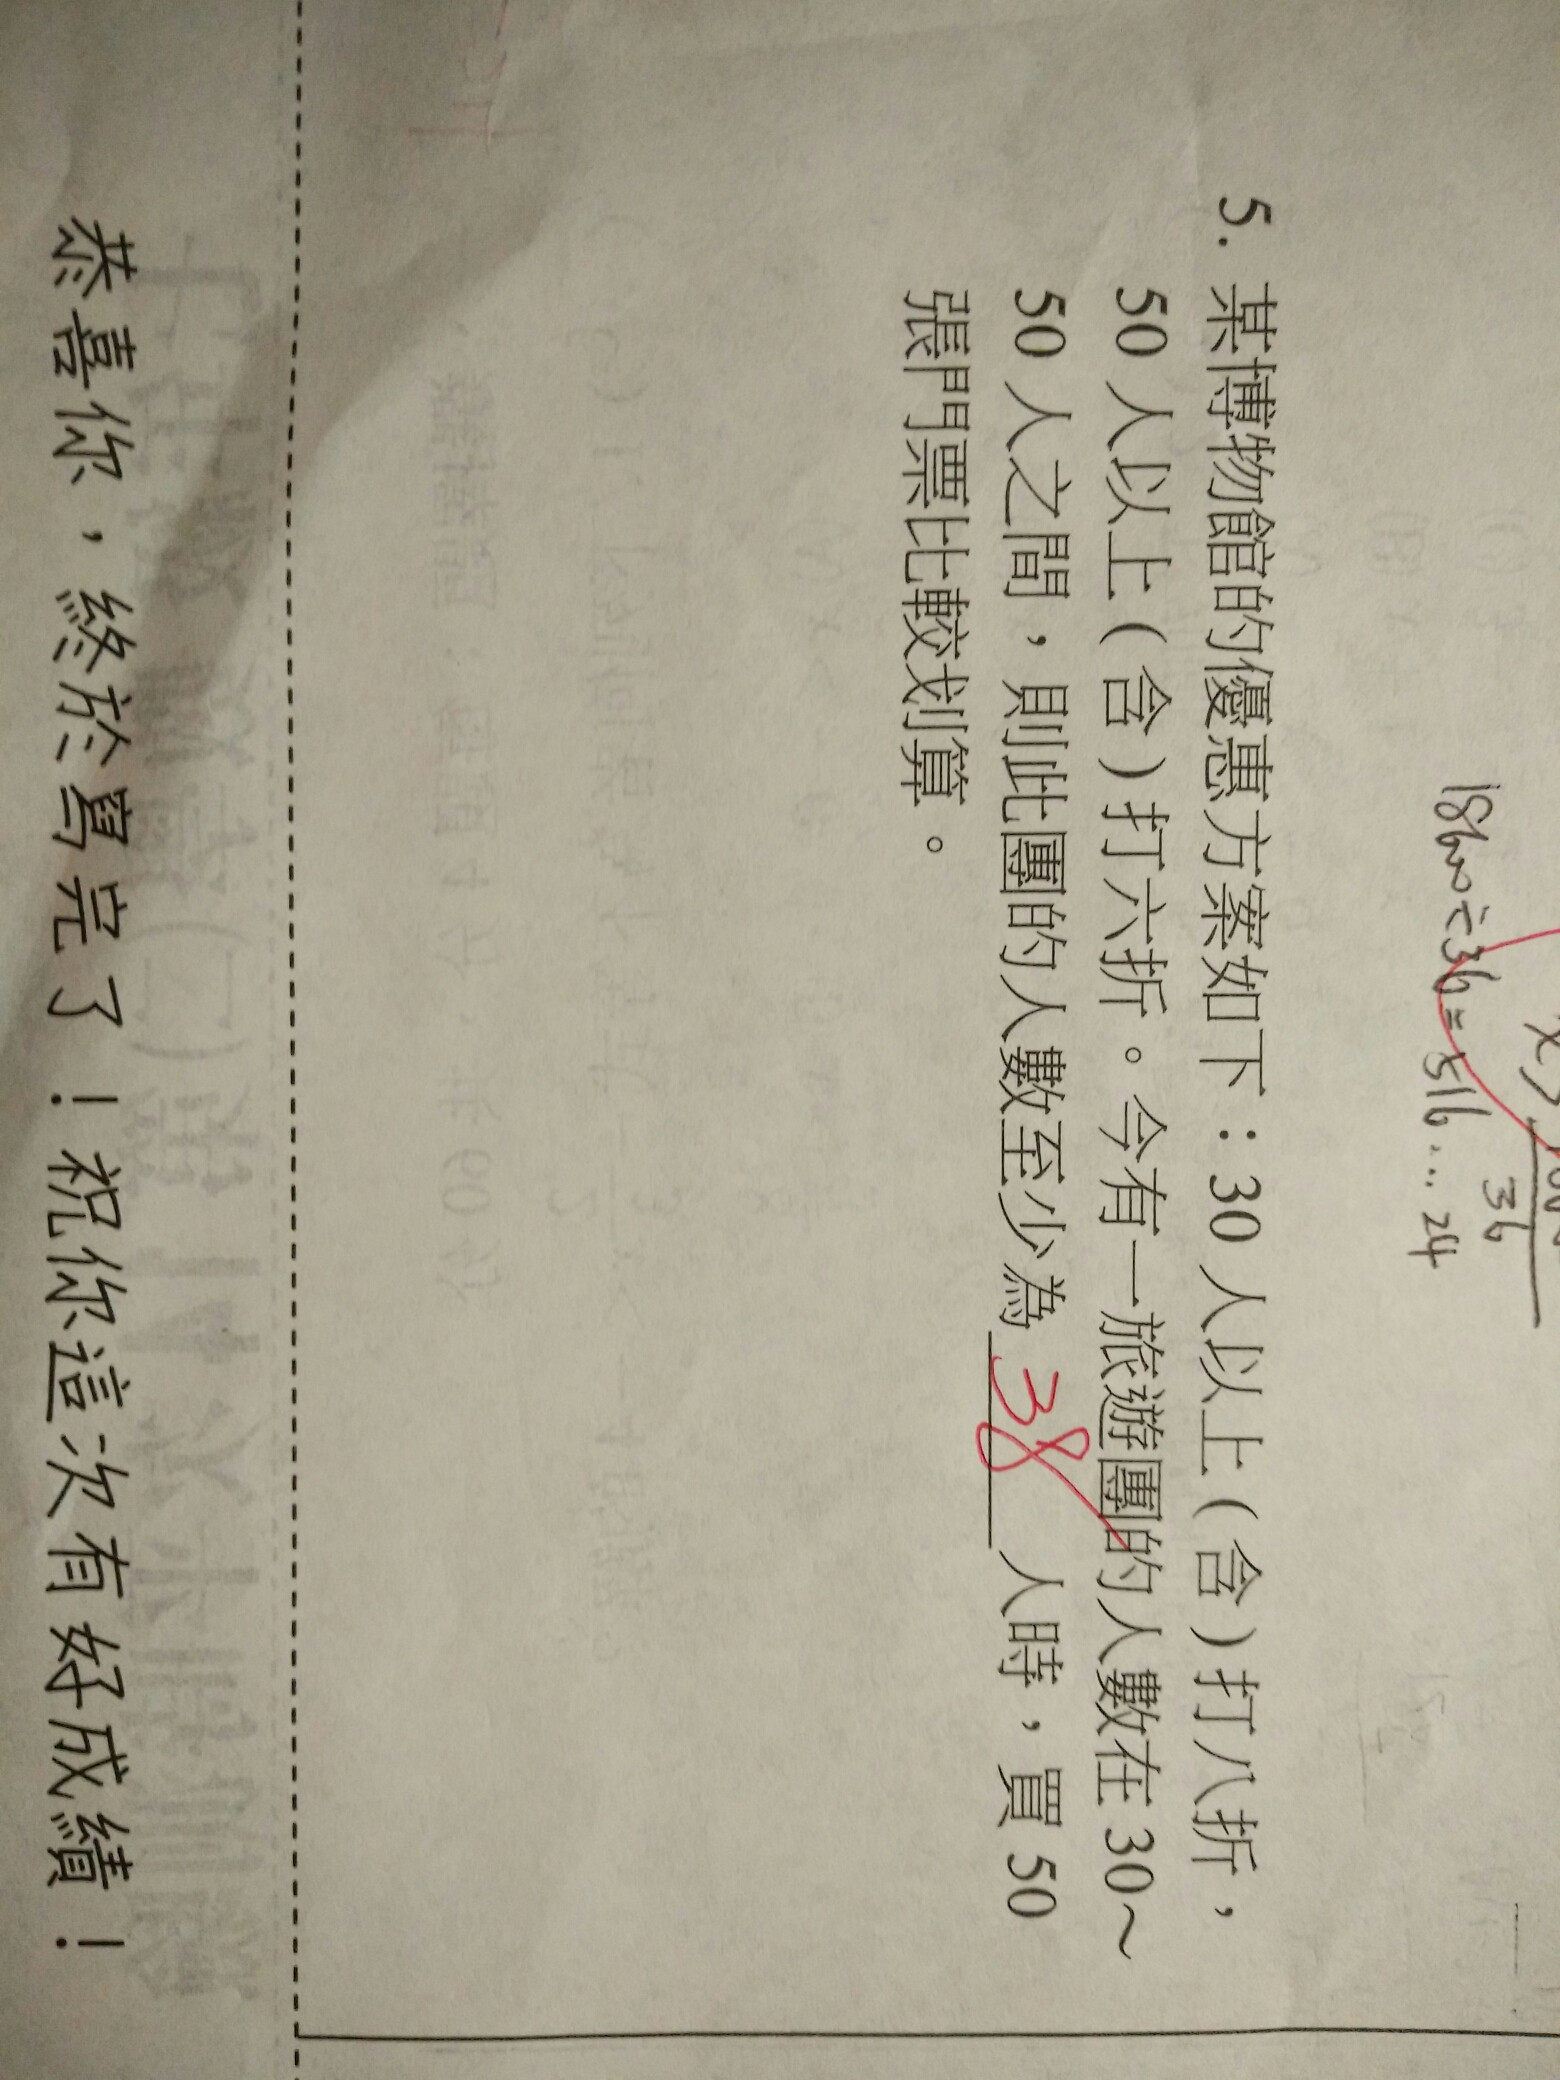 18600÷36=516...24
36
5. 某博物館的優惠方案如下：30 人以上(含)打八折，
50 人以上(含)打六折。今有一旅遊團的人數在 30～
50 人之間，則此團的人數至少為 38 人時，買 50
張門票比較划算。
恭喜你，終於寫完了！祝你這次有好成績！